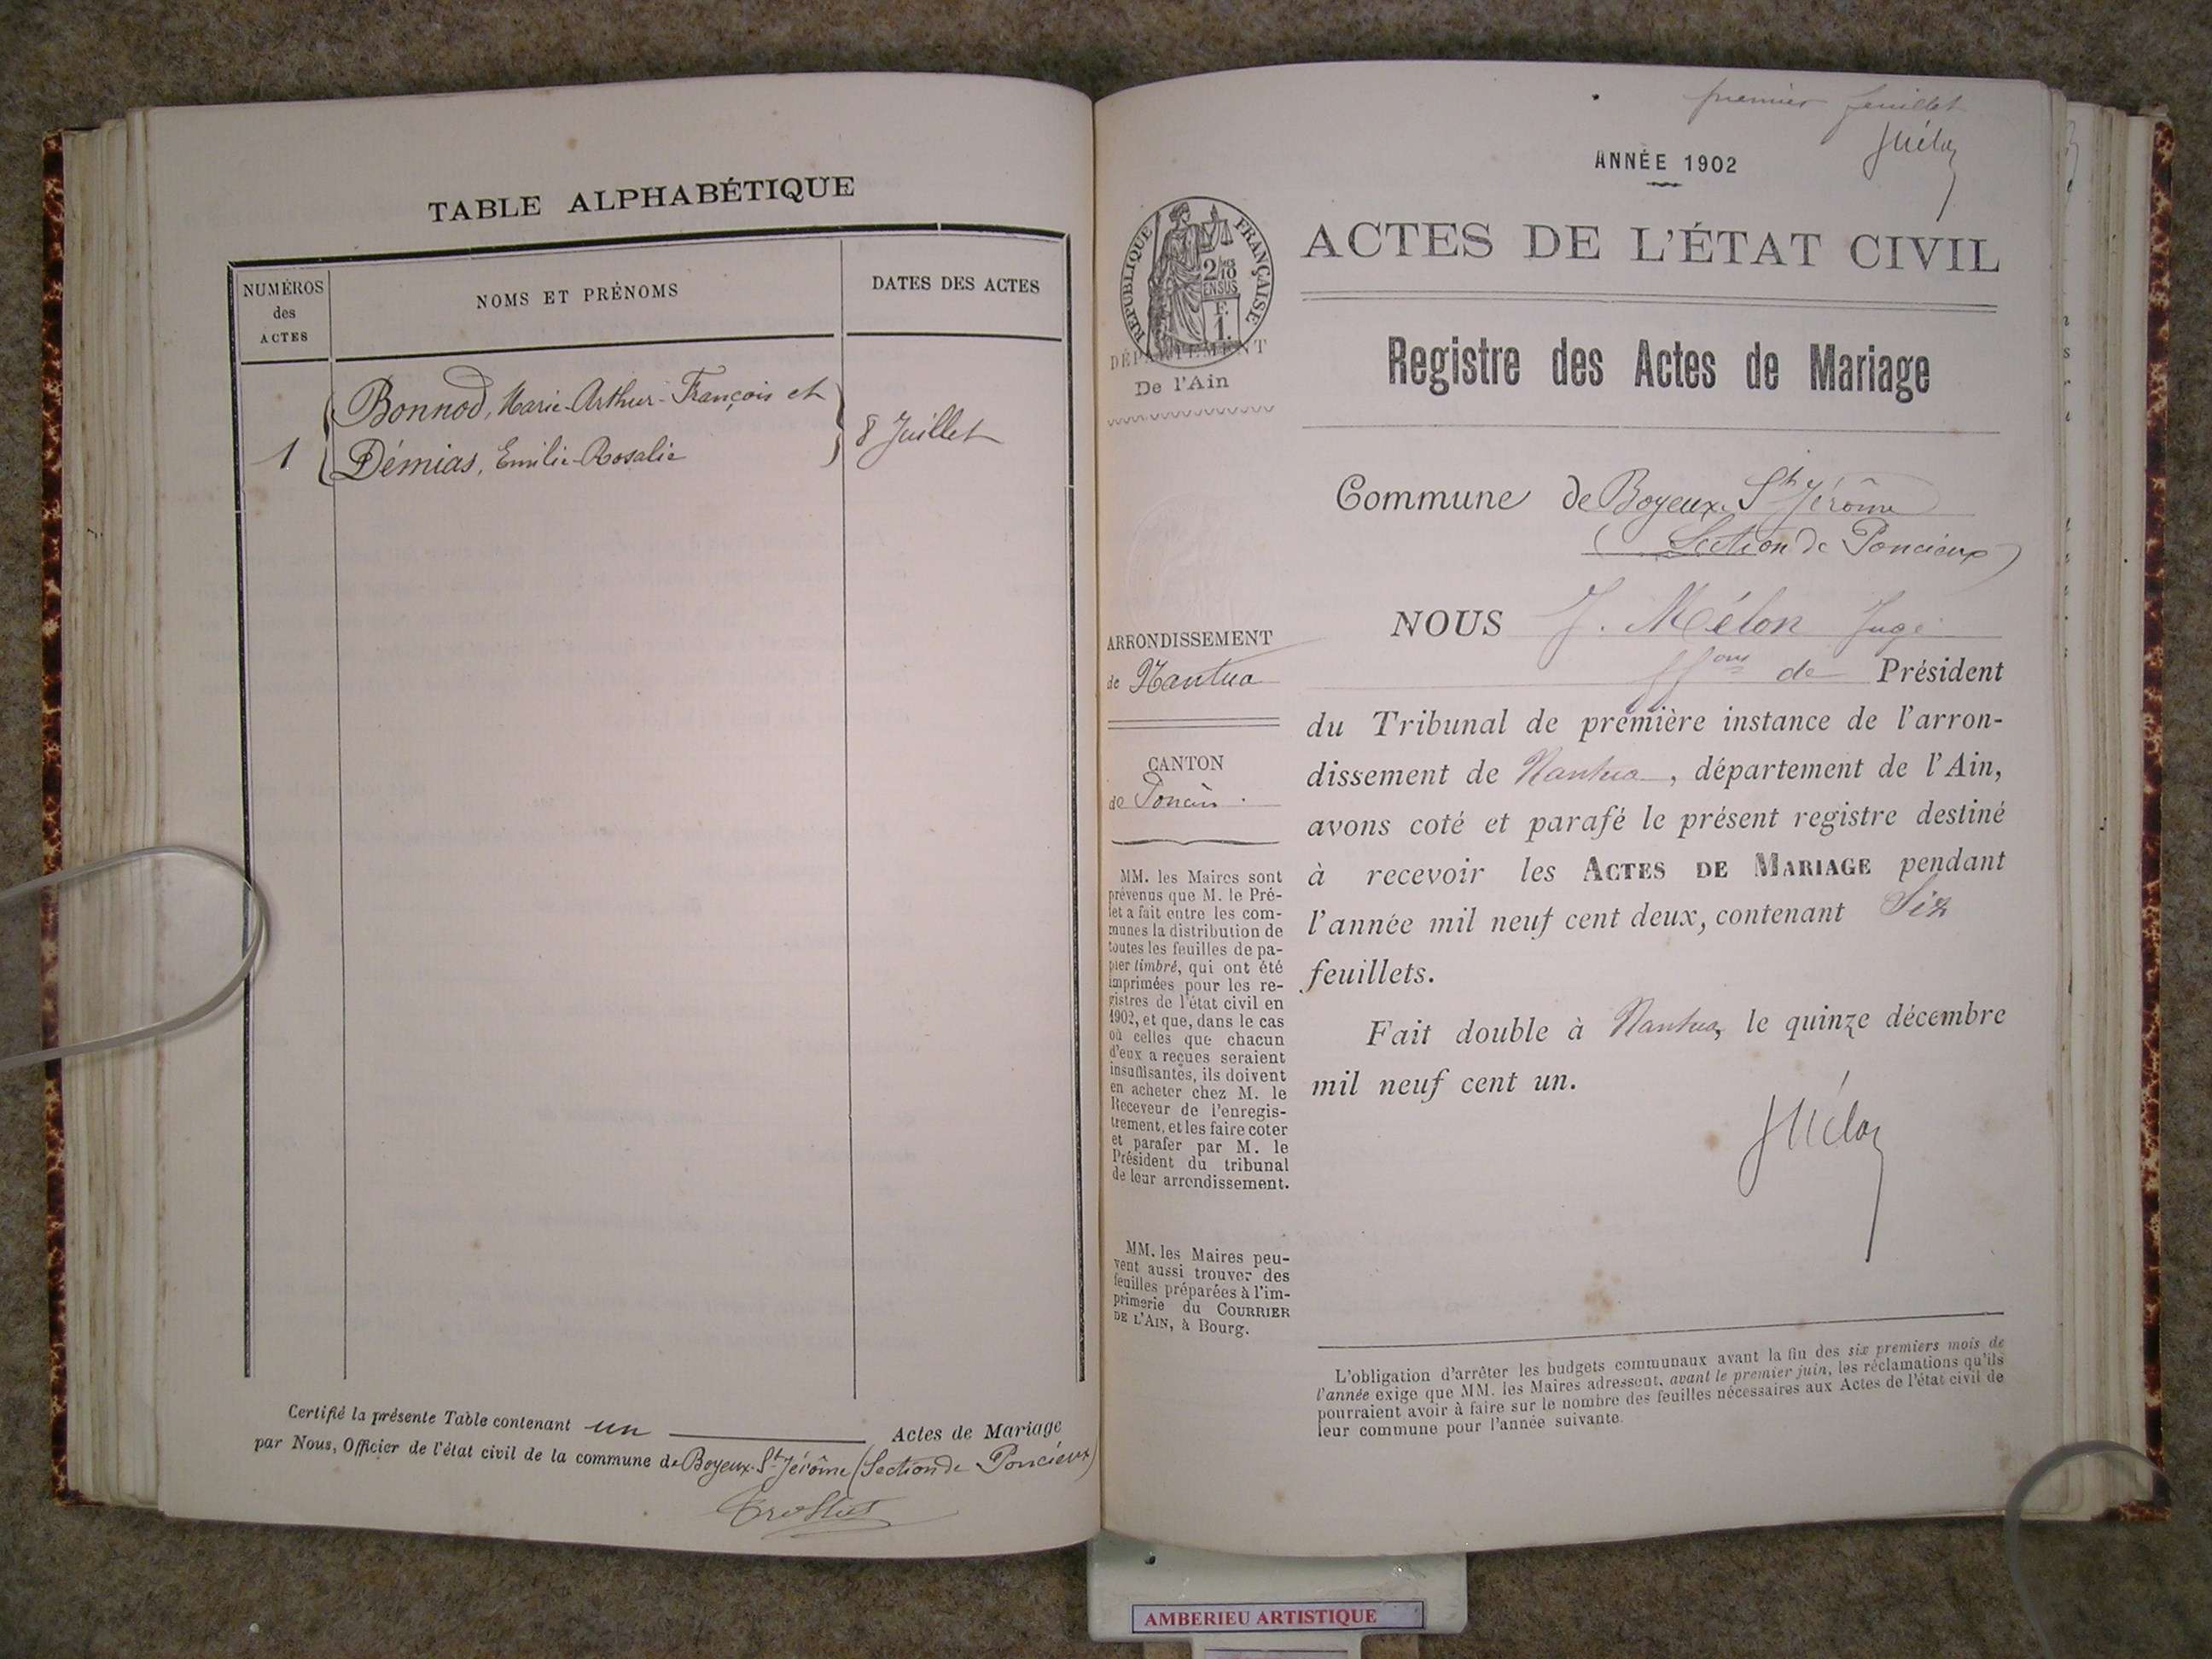 TABLE ALPHABÉTIQUE
NUMÉROS
des
ACTES
NOMS ET PRÉNOMS
DATES DES ACTES
1
Bonnod, Marie-Arthur-François et
Démias, Emilie-Rosalie
8 Juillet
Certifié la présente Table contenant un Actes de Mariage
par Nous, Officier de l'état civil de la commune de Boyeux-St-Jérôme (Section de Poncieux)
premier feuillet
JMélon
ANNÉE 1902
ACTES DE L'ÉTAT CIVIL
Registre des Actes de Mariage
RÉPUBLIQUE FRANÇAISE
2/10
EN SUS
F.
1.
DÉPARTEMENT
De l'Ain
Commune de Boyeux-St-Jérôme
(Section de Poncieux)
ARRONDISSEMENT
de Nantua
CANTON
de Poncin.
MM. les Maires sont
prévenus que M. le Pré-
fet a fait entre les com-
munes la distribution de
toutes les feuilles de pa-
pier timbré, qui ont été
imprimées pour les re-
gistres de l'état civil en
1902, et que, dans le cas
où celles que chacun
d'eux a reçues seraient
insuffisantes, ils doivent
en acheter chez M. le
Receveur de l'enregis-
trement, et les faire coter
et parafer par M. le
Président du tribunal
de leur arrondissement.
MM. les Maires peu-
vent aussi trouver des
feuilles préparées à l'im-
primerie du COURRIER
DE L'AIN, à Bourg.
NOUS J. Mélon Juge
ffons de Président
du Tribunal de première instance de l'arron-
dissement de Nantua, département de l'Ain,
avons coté et parafé le présent registre destiné
à recevoir les ACTES DE MARIAGE pendant
l'année mil neuf cent deux, contenant Six
feuillets.
Fait double à Nantua, le quinze décembre
mil neuf cent un.
JMélon
L'obligation d'arrêter les budgets communaux avant la fin des six premiers mois de
l'année exige que MM. les Maires adressent, avant le premier juin, les réclamations qu'ils
pourraient avoir à faire sur le nombre des feuilles nécessaires aux Actes de l'état civil de
leur commune pour l'année suivante.
AMBERIEU ARTISTIQUE